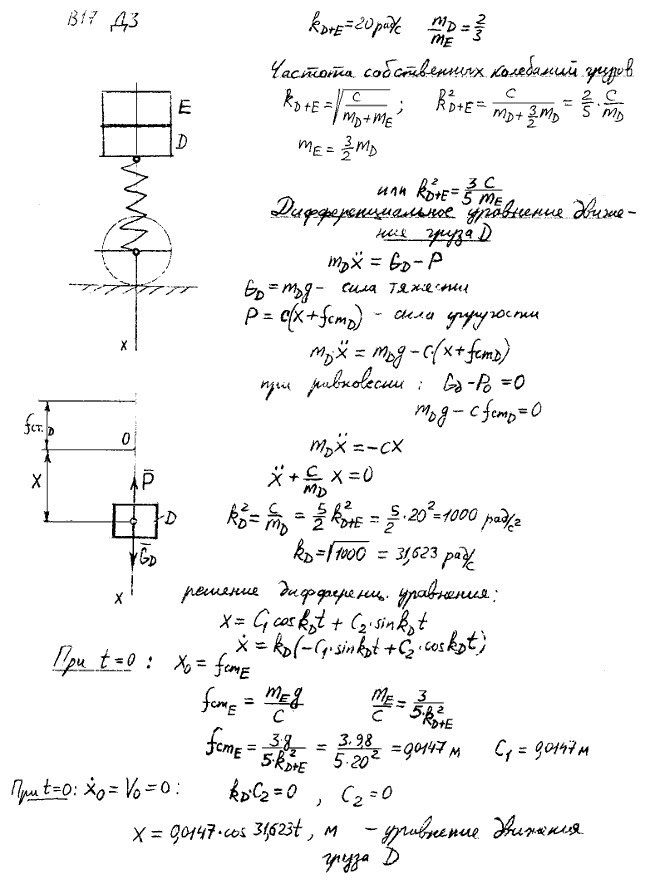 В17 Д3
k_{D+E}=20 рад/с  m_D/m_E=2/3
Частота собственных колебаний грузов
k_{D+E}=√(c/(m_D+m_E)); k²_{D+E}=c/(m_D+3/2 m_D)=2/5·c/m_D
E
D
m_E=3/2 m_D
или k²_{D+E}=3/5 c/m_E
Дифференциальное уравнение движе-
ния груза D
m_D ẍ = G_D-P
G_D=m_D g - сила тяжести
P = c(x+f_{стD}) - сила упругости
x
m_D·ẍ = m_D g-c·(x+f_{стD})
при равновесии: G_D-P_0=0
m_D g-c f_{стD}=0
f_{ст.D}
0
m_D ẍ=-cx
x
P̄
ẍ+c/m_D x=0
D
k_D²=c/m_D=5/2 k²_{D+E}=5/2·20²=1000 рад/с²
Ḡ_D
k_D=√1000 = 31,623 рад/с
x
решение дифференц. уравнения:
x=C_1 cos k_D t + C_2·sin k_D t
ẋ = k_D(-C_1·sin k_D t+C_2·cos k_D t)
При t=0: x_0=f_{стE}
f_{стE} = m_E g/c  m_E/c=3/(5·k²_{D+E})
f_{стE}=3·g/(5·k²_{D+E}) = 3·9,8/(5·20²) =0,0147 м  C_1=0,0147 м
При t=0: ẋ_0=V_0=0: k_D·C_2=0 , C_2=0
x=0,0147·cos 31,623t, м - уравнение движения
груза D